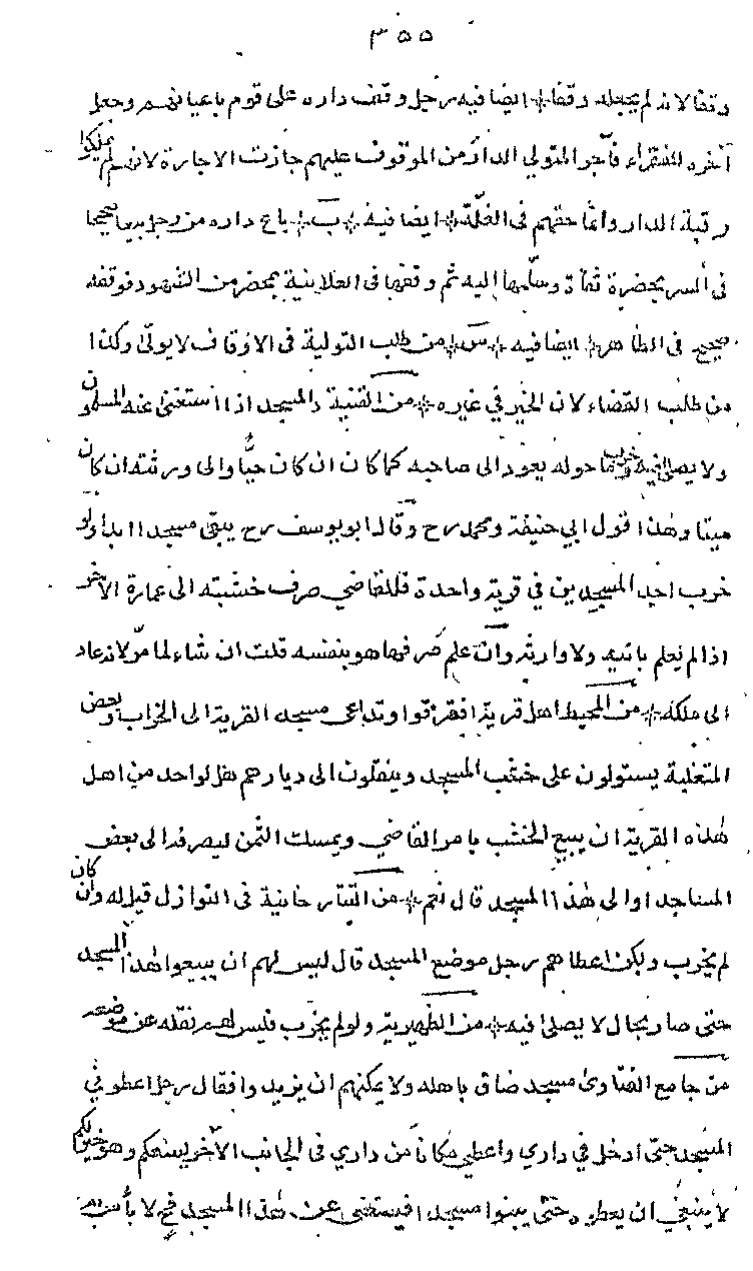 ٣٥٥
وقفا لانه لم يجعله وقفا ايضا فيه رجل وقف داره على قوم باعيانهم وجعل
آخره للفقراء فآجر المتولي الدار من الموقوف عليهم جازت الاجارة لانهم لم يملكوا
رقبة الدار وانما حقهم فى الغلة ايضا فيه ب باع داره من رجل بيعا صحيحا
فى السر بحضرة ثقاة وسلمها اليه ثم وقفها فى العلانية بمحضر من الشهود فوقفه
صحيح فى الظاهر ايضا فيه س من طلب التولية فى الاوقاف لا يولى وكذا
من طلب القضاء لان الخير في غيره من القنية المسجد اذا استغنى عنه المسلمون
ولا يصلى فيه وخرب ما حوله يعود الى صاحبه كما كان ان كان حيا والى ورثته ان كان
ميتا وهذا قول ابي حنيفة ومحمد رح وقال ابو يوسف رح يبقى مسجدا ابدا ولو
خرب احد المسجدين في قرية واحدة فللقاضي صرف خشبته الى عمارة الآخر
اذا لم نعلم بانيه ولا وارثه وان علم صرفها هو بنفسه قلت ان شاء لما مر لانه عاد
الى ملكه من المحيط اهل قرية افترقوا وتداعى مسجد القرية الى الخراب وبعض
المتغلبة يستولون على خشب المسجد وينقلون الى ديارهم هل لواحد من اهل
هذه القرية ان يبيع الخشب بامر القاضي ويمسك الثمن ليصرفه الى بعض
المساجد او الى هذا المسجد قال نعم من التتارخانية فى النوازل قيل له وان كان
لم يخرب ولكن اعطاهم رجل موضع المسجد قال ليس لهم ان يبيعوا هذا المسجد
حتى صار بحال لا يصلى فيه من الظهيرية ولو لم يخرب فليس لهم نقله عن موضعه
من جامع الفتاوى مسجد ضاق باهله ولا يمكنهم ان يزيدوا فقال رجل اعطوني
المسجد حتى ادخل في داري واعطي مكانا من داري فى الجانب الآخر يسعكم وهو خير لكم
لا ينبغي ان يعطوه حتى يبنوا مسجدا فيستغنى عن هذا المسجد فح لا بأس به